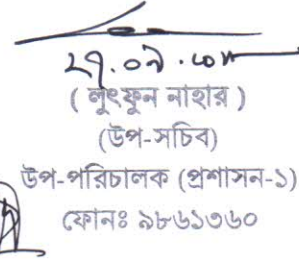 ২৭.০৯.
( লুৎফুন নাহার )
(উপ-সচিব)
উপ-পরিচালক (প্রশাসন-১)
ফোনঃ ৯৮৬১৩৬০